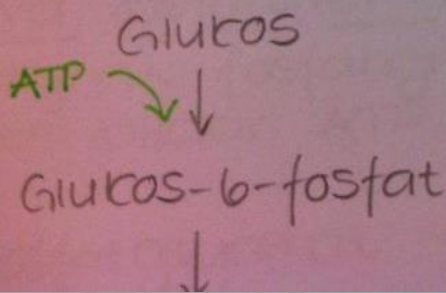 Glukos
ATP
Glukos-6-fosfat